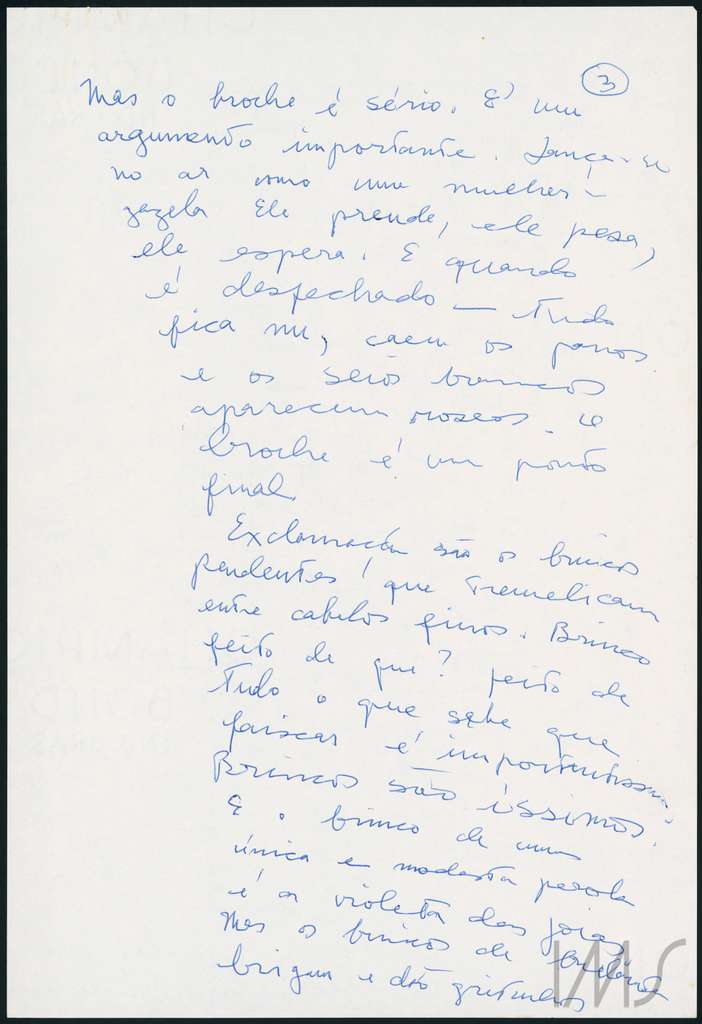 3
Mas o broche é sério. É um
argumento importante. Lança-se
no ar como uma mulher-
gazela Ele prende, ele pesa,
ele espera. E quando
é desfechado — tudo
fica nu, caem os panos
e os seios brancos
aparecem roseos. O
broche é um ponto
final.
Exclamação são os brincos
pendentes! que tremelicam
entre cabelos finos. Brinco
feito de que? feito de
tudo o que sabe que
faiscar é importantissimo.
Brincos são íssimos.
E o brinco de uma
única e modesta perola
é a violeta das joias
Mas os brincos de brilhante
brigam e dão gritinhos
IMS